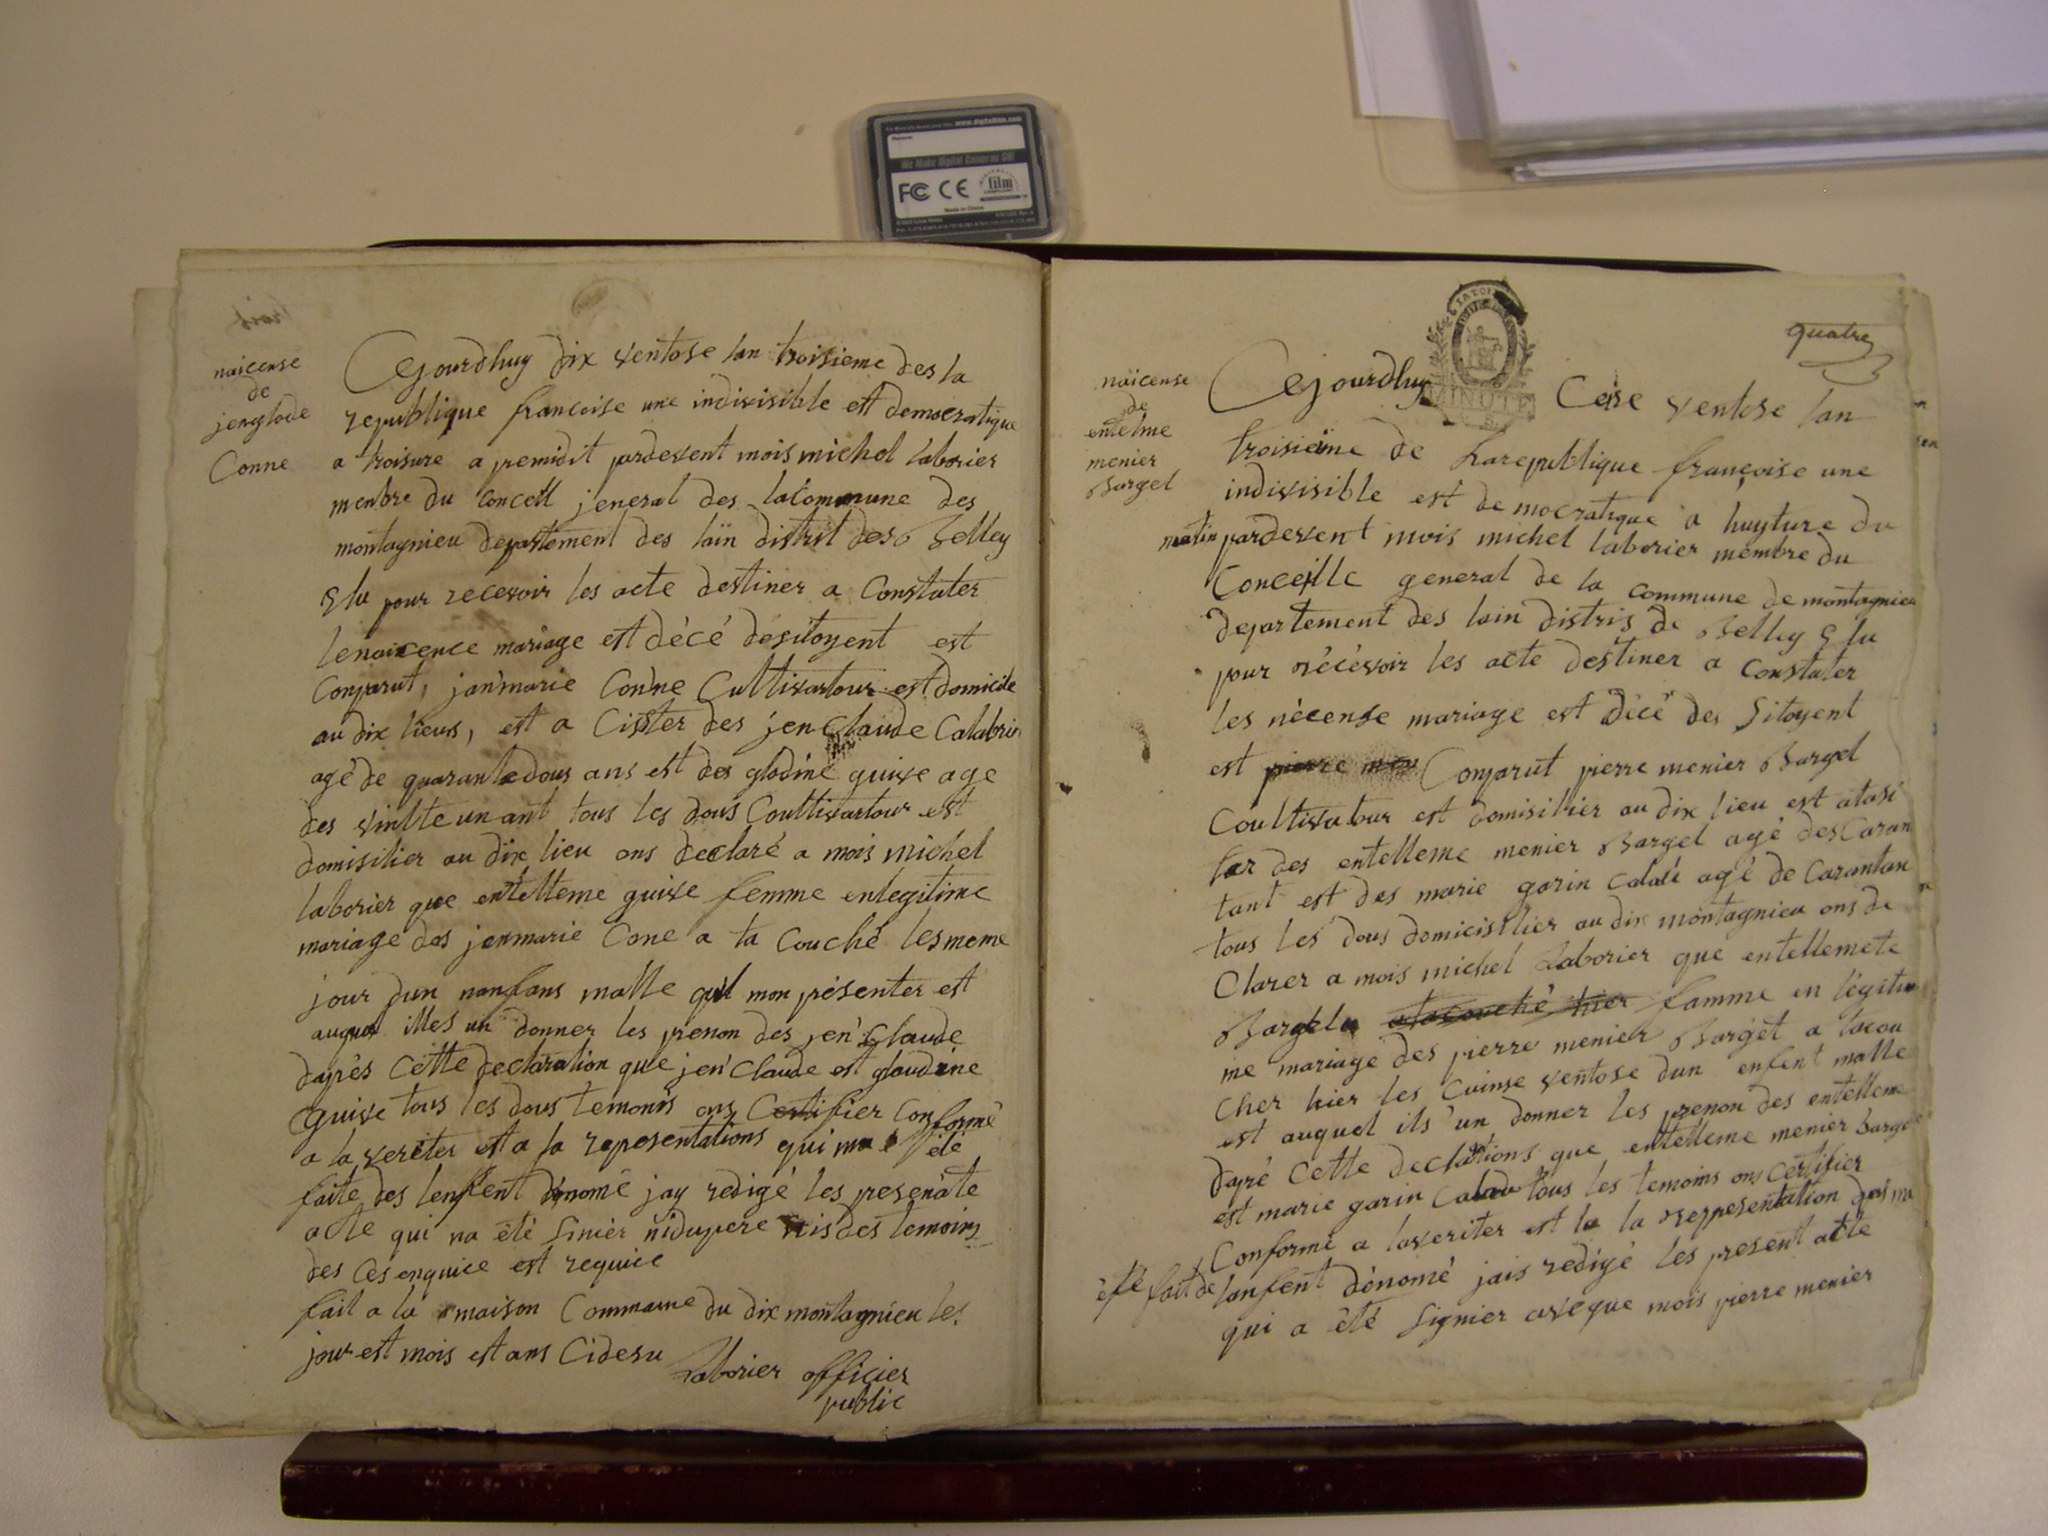 www.digitalfilm.com
We Make Digital Cameras Go!
FC CE
film
Made in China
naicense
de
jenglode
Conne
Cejourdhuy dix ventose lan troisieme des la
republique francoise une indivisible est democratique
a troisure a premidit pardevent mois michel laborier
menbre du Concell jeneral des lacommune des
montagnieu departement des lain distrit des Belley
Elu pour recevoir les acte destiner a Constater
lenaicence mariage est décé desitoyent est
Comparut, janmarie Conne Cultivartour est domicile
au dix lieus, est a Cister des jen Claude Calabrin
agé de quarantedous ans est des glodine guive age
des vintte un ant tous les dous Coultivartour est
domisilier au dix lieu ons declaré a mois michel
laborier que entelteme guive femme enlegitime
mariage des jenmarie Cone a ta Couché lesmeme
jour dun nanfans malle quil mon présenter est
auquel illes un donner les prenon des jen Claude
daprés Cette declaration que jen Claude est gloudine
guive tous les dous temonis ons Certifier Conformé
a la veréter est a la repesentations qui ma été
faite des lenfent dénomé jay redigé les presenate
acte qui na été Sinier nidupere nis des temoins
des Ces enquice est requice
fait a la maison Commune du dix montagnieu les
jour est mois est ans Cidesu
Laborier officier
public
quatre
MINUTE
naicense
de
entelme
menier
Bargel
Cejourdhuy Ceise ventose lan
troisieme de Larepublique françoise une
indivisible est democratique a huyture du
matin pardevent mois michel laborier membre du
Conceille general de la commune de montagnieu
departement des lain distris de Belley Elu
pour récévoir les acte destiner a Constater
les nécense mariage est décé des Sitoyent
est pierre men Comparut pierre menier Bargel
Coultivatour est domisilier au dix lieu est atasi
ter des entelleme menier Bargel agé des Caran
tant est des marie garin Caladi agé de Carantan
tous les dous domicisilier au dix montagnieu ons de
Clarer a mois michel Laborier que entellemete
Bargel atacouché hier famme en légitu
me mariage des pierre menier Barget a tacou
cher hier les Cuinse ventose dun enfent malle
est auquel ils un donner les prenon des entelleme
dapré Cette declations que entelleme menier bargel
est marie garin tous les temoins ons Certifier
Conformé a laveriter est la la reppesentation qui ma
été fait de lanfent dénomé jais redigé les present acte
qui a été Signier aveque mois pierre menier